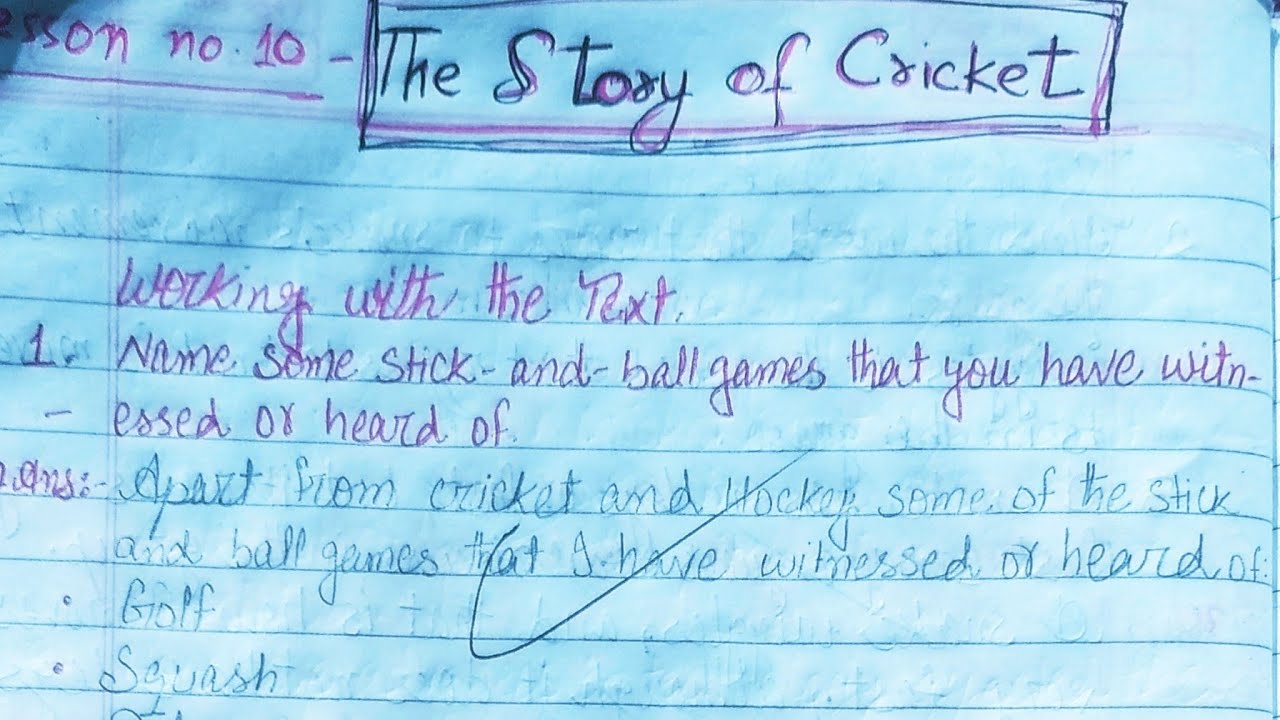 esson no. 10 - The Story of Cricket
Working with the Text.
1. Name some stick-and-ball games that you have witn-
- essed or heard of.
Ans:- Apart from cricket and Hockey some of the stick
and ball games that I have witnessed or heard of:
• Golf
• Squash